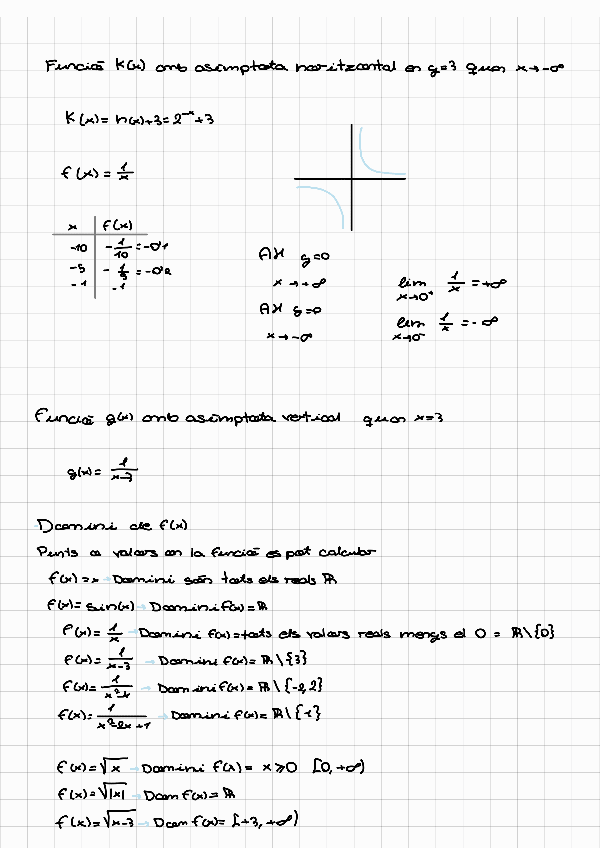 Funció K(x) amb asímptota horitzontal en y=3 quan x→-∞
K(x)= h(x)+3=2^-x+3
f(x)= 1/x
x | f(x)
-10 | -1/10=-0'1
-5 | -1/5=-0'2
-1 | -1
AH y=0
x→+∞
AH y=0
x→-∞
lim x→0⁺ 1/x=+∞
lim x→0⁻ 1/x=-∞
Funció g(x) amb asímptota vertical quan x=3
g(x)= 1/x-3
Domini de f(x)
Punts o valors on la funció es pot calcular
f(x)=x → Domini són tots els reals ℝ
f(x)=sin(x) → Domini f(x)=ℝ
f(x)= 1/x → Domini f(x)=tots els valors reals menys el 0 = ℝ\{0}
f(x)= 1/x-3 → Domini f(x)= ℝ\{3}
f(x)= 1/x²-4 → Domini f(x)= ℝ\{-2,2}
f(x)= 1/x²-2x+1 → Domini f(x)= ℝ\{1}
f(x)=√x → Domini f(x)= x⩾0 [0,+∞)
f(x)=√|x| → Dom f(x)=ℝ
f(x)=√x-3 → Dom f(x)= [+3,+∞)